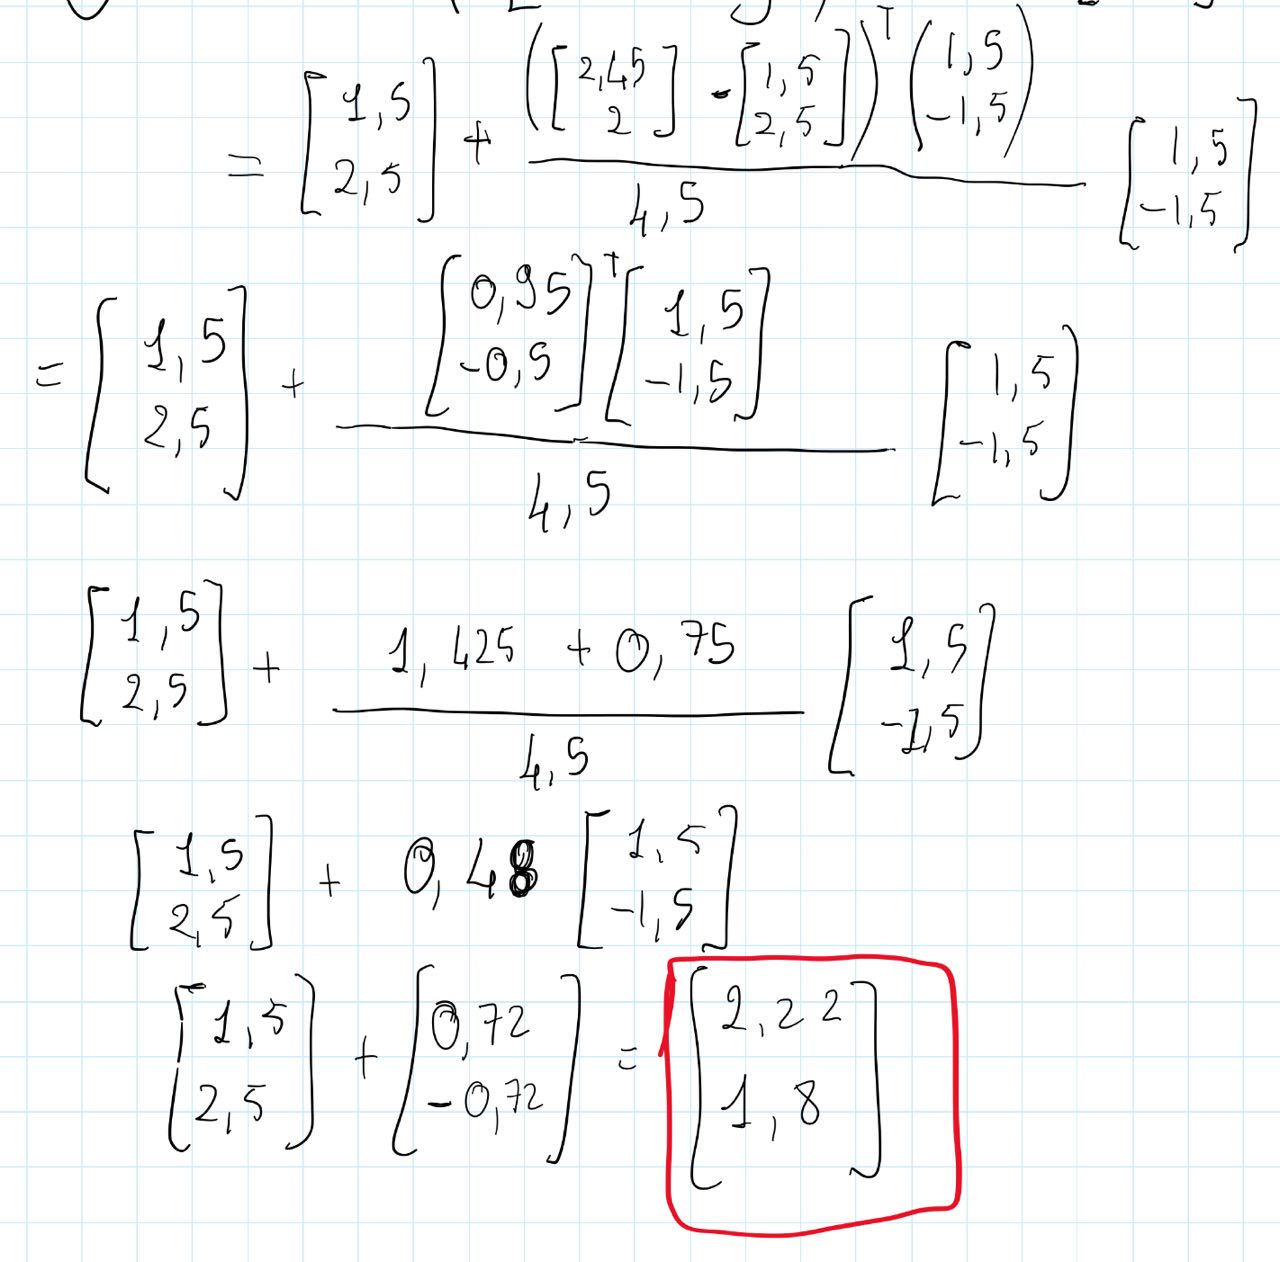 = [1,5 2,5] + (([2,45 2] - [1,5 2,5])ᵀ (1,5 -1,5)) / 4,5 [1,5 -1,5]
= [1,5 2,5] + ([0,95 -0,5]ᵀ [1,5 -1,5]) / 4,5 [1,5 -1,5]
[1,5 2,5] + (1,425 + 0,75) / 4,5 [1,5 -1,5]
[1,5 2,5] + 0,48 [1,5 -1,5]
[1,5 2,5] + [0,72 -0,72] = [2,22 1,8]